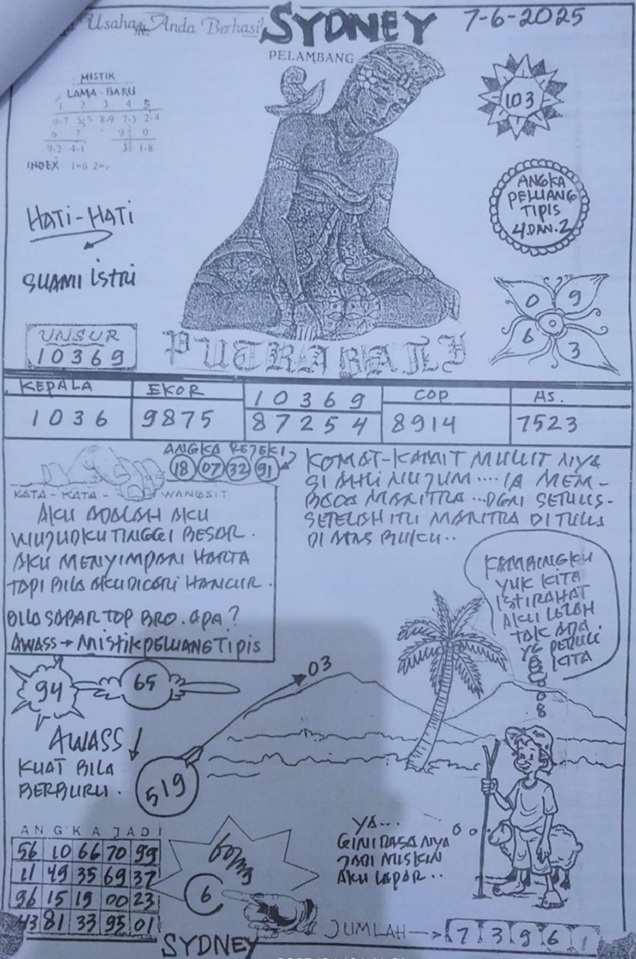 Usaha Anda Berhasil
SYDNEY
7-6-2025
PELAMBANG
MISTIK
LAMA - BARU
1 2 3 4 5
8-9 7-5 2-4
6 7 9 0
9-2 4-1 3 1-8
INDEX
103
ANGKA
PELUANG
TIPIS
4 DAN 2
HATI-HATI
SUAMI ISTRI
0 9
6 3
UNSUR
10369
PUTRA BALI
KEPALA
1036
EKOR
9875
10369
87254
COP
8914
AS.
7523
ANGKA REJEKI
18 07 32 91
KATA - KATA - WANGSIT
AKU ADALAH AKU
WUJUDKU TINGGI BESAR.
AKU MENYIMPAN HARTA
TAPI BILA AKU DICARI HANCUR.
BILA SABAR TOP BRO. APA?
AWASS → MISTIK PELUANG TIPIS
KOMAT-KAMIT MULUT NYA
SI AHLI NUJUM.... IA MEM-
BACA MANTRA ...DGN SERIUS-
SETELAH ITU MANTRA DI TULIS
DI ATAS BUKU..
KAMBINGKU
YUK KITA
ISTIRAHAT
AKU LELAH
TAK ADA
YG PEDULI
KITA
94
65
03
AWASS
KUAT BILA
BERBURU.
519
ANGKA JADI
56 10 66 70 99
11 49 35 69 37
96 15 19 00 23
43 81 33 95 01
BOM
6
SYDNEY
YA...
GINI RASA NYA
JADI MISKIN
AKU LAPAR..
JUMLAH → 7 3 9 6 1